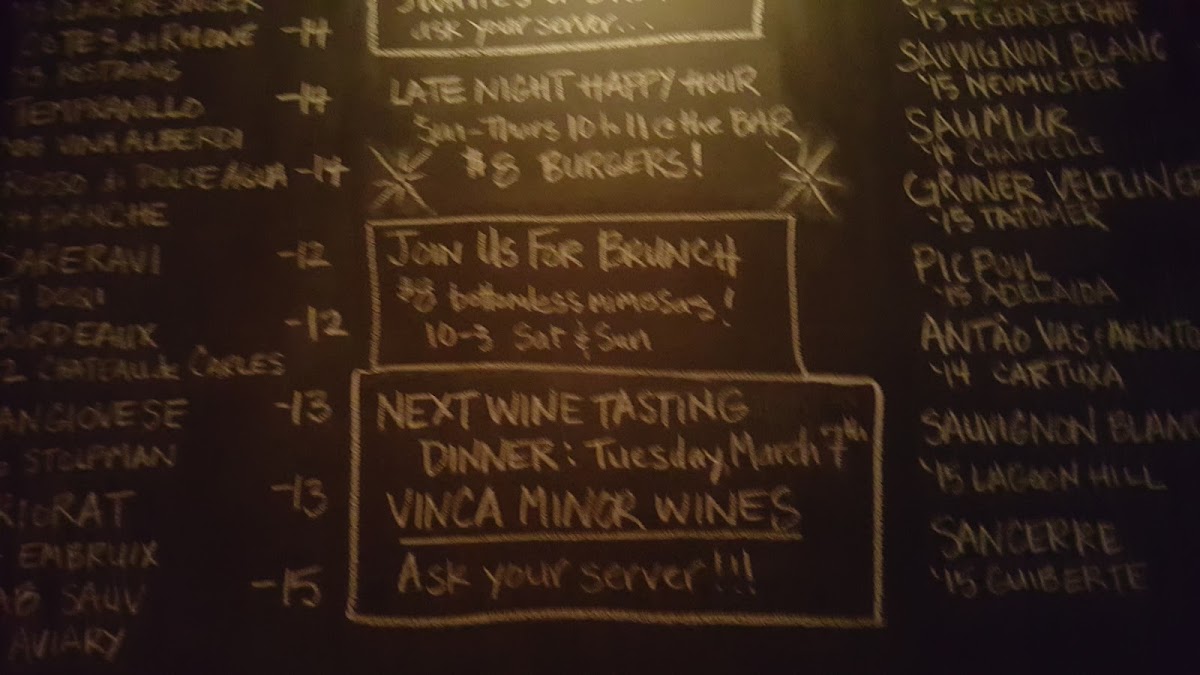 COTES du RHONE -14
TEMPRANILLO -14
VINA ALBERDI
ROSSO di DOLCEAQUA -14
SAPERAVI -12
BORDEAUX -12
2 CHATEAU de CARLES
ANGIOVESE -13
STOLPMAN
RIORAT -13
EMBRUIX
AB SAUV -15
AVIARY
ask your server...
LATE NIGHT HAPPY HOUR
Sun-Thurs 10 to 11 @ the BAR
$8 BURGERS!
JOIN US FOR BRUNCH
$8 bottomless mimosas!
10-3 Sat & Sun
NEXT WINE TASTING
DINNER: Tuesday, March 7th
VINCA MINOR WINES
Ask your server!!!
'15 TEGERNSEERHOF
SAUVIGNON BLANC
'15 NEUMEISTER
SAUMUR
CHANCELLE
GRUNER VELTLINE
'15 TATOMER
PICPOUL
'15 ADELAIDA
ANTÃO VAS & ARINTO
'14 CARTUXA
SAUVIGNON BLANC
'15 LAGOON HILL
SANCERRE
'15 GUIBERTE